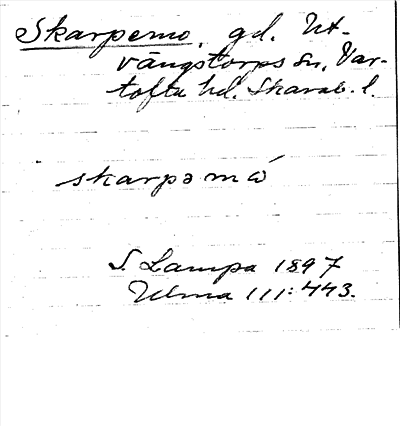 Skarpemo, gd. Ut-
vängstorps sn, Var-
tofta hd. Skarab. l.
skarpəmω
S. Lampa 1897
Ulma 111:443.